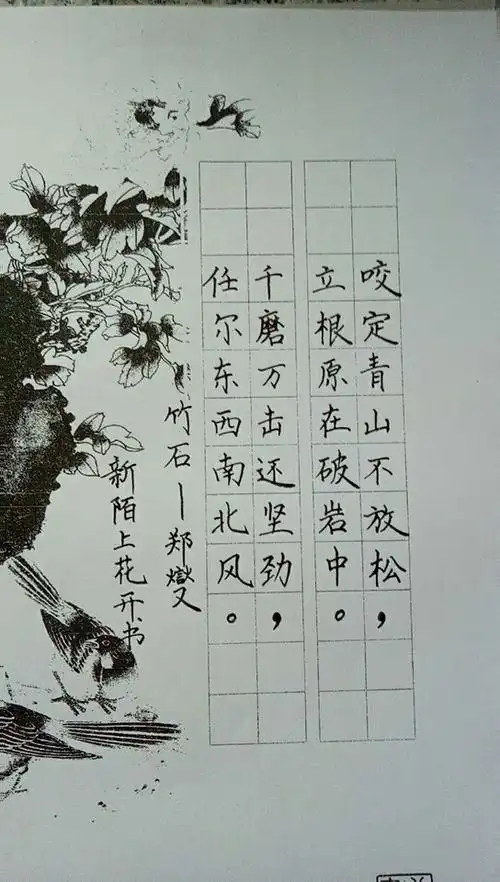 咬定青山不放松，
立根原在破岩中。
千磨万击还坚劲，
任尔东西南北风。
竹石—郑燮
新陌上花开书